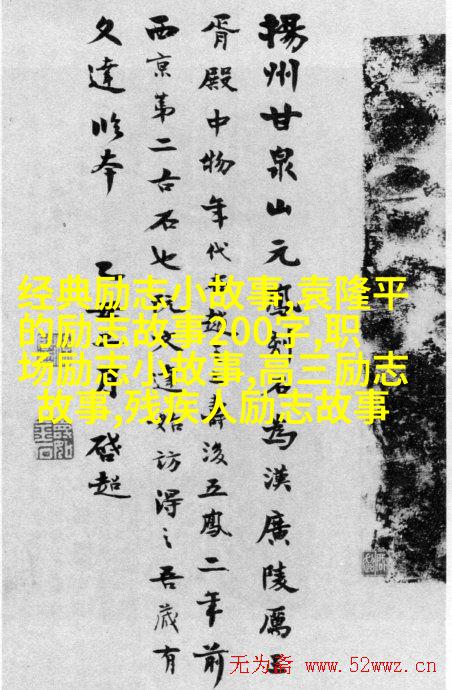 揚州甘泉山元鳳刻石為漢廣陵厲王
胥殿中物年代後五鳳二年前
西京第二古石也阮文達始訪得之吾歲有
文達本
乙丑月啓超
经典励志小故事,袁隆平
的励志故事200字,职
场励志小故事,高三励志
故事,残疾人励志故事
无为斋 www.52wwz.cn